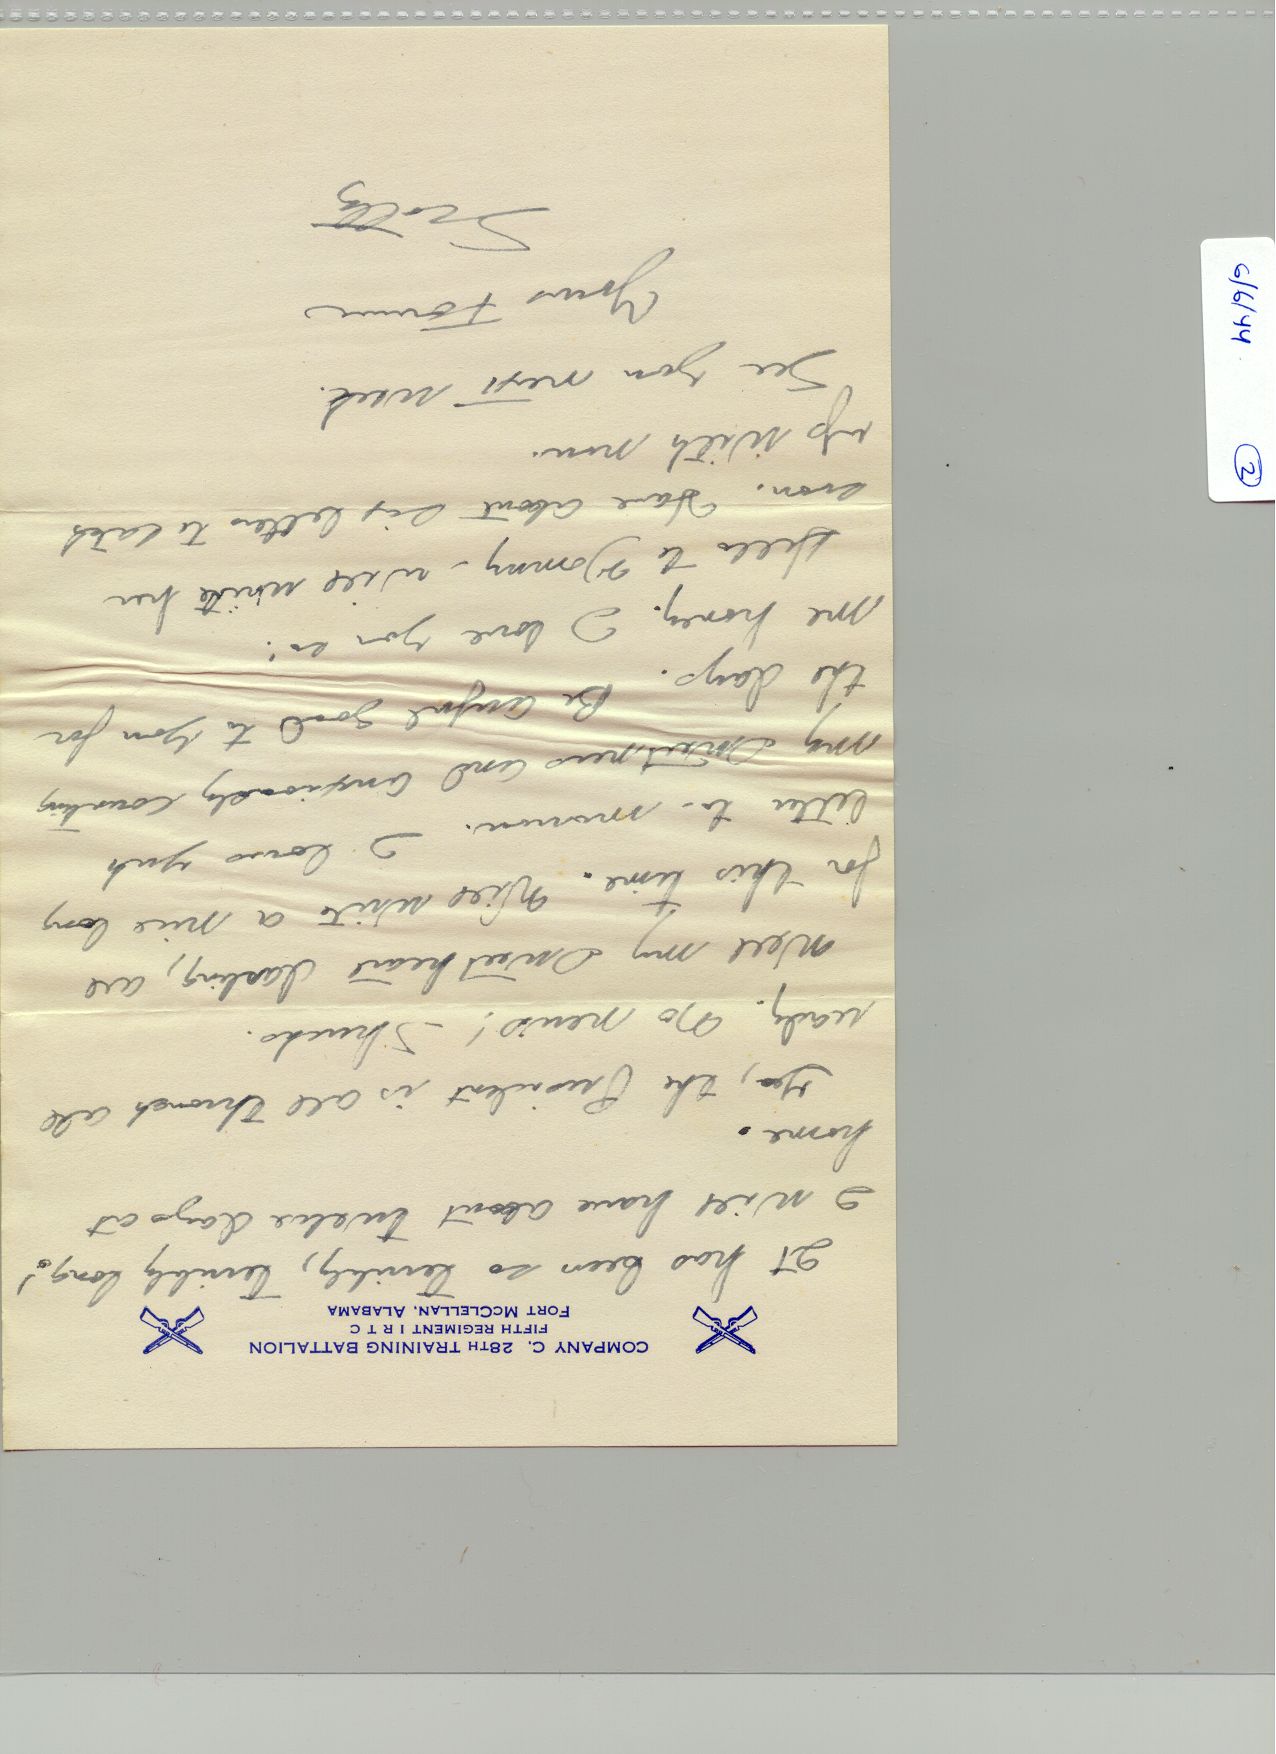 COMPANY C. 28TH TRAINING BATTALION
FIFTH REGIMENT I R T C
FORT MCCLELLAN, ALABAMA
It has been so terribly, terribly long!
I will have about twelve days at
home.
Yes, the President is all through all
ready. No news! Shucks.
Well my Sweetheart darling, all
for this time. Will write a nice long
letter to-morrow. I love you
my Sweetness and anxiously counting
the days. Be awful good to you for
me honey. I love you so!
Hello to Mommy - will write her
soon. Have about six letters to catch
up with now.
See you next week.
Yours Forever
Scotty
6/6/44
2